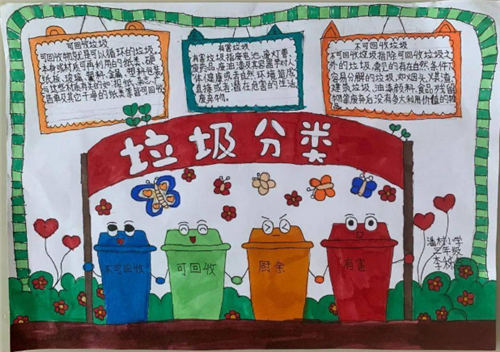 可回收垃圾
可回收物就是可以循环的垃圾
本身或材质可再利用的纸类、硬
纸板、玻璃、塑料、金属、塑料包装,
与这些材质有关的如:报纸、杂志、广
告单及其它干净的纸类等皆可回收
有害垃圾
有害垃圾指废电池、废灯管、
废药品、废油漆及其容器等对人
体健康或者自然环境造成
直接或者潜在危害的生活
废弃物。
不可回收垃圾
不可回收垃圾指除可回收垃圾之
外的垃圾,常见的有在自然条件下
容易分解的垃圾,如烟头、煤渣、
建筑垃圾、油漆颜料、食品残留
物等废弃后没有多大利用价值的物
垃圾分类
不可回收
可回收
厨余
有害
小学
年级
李